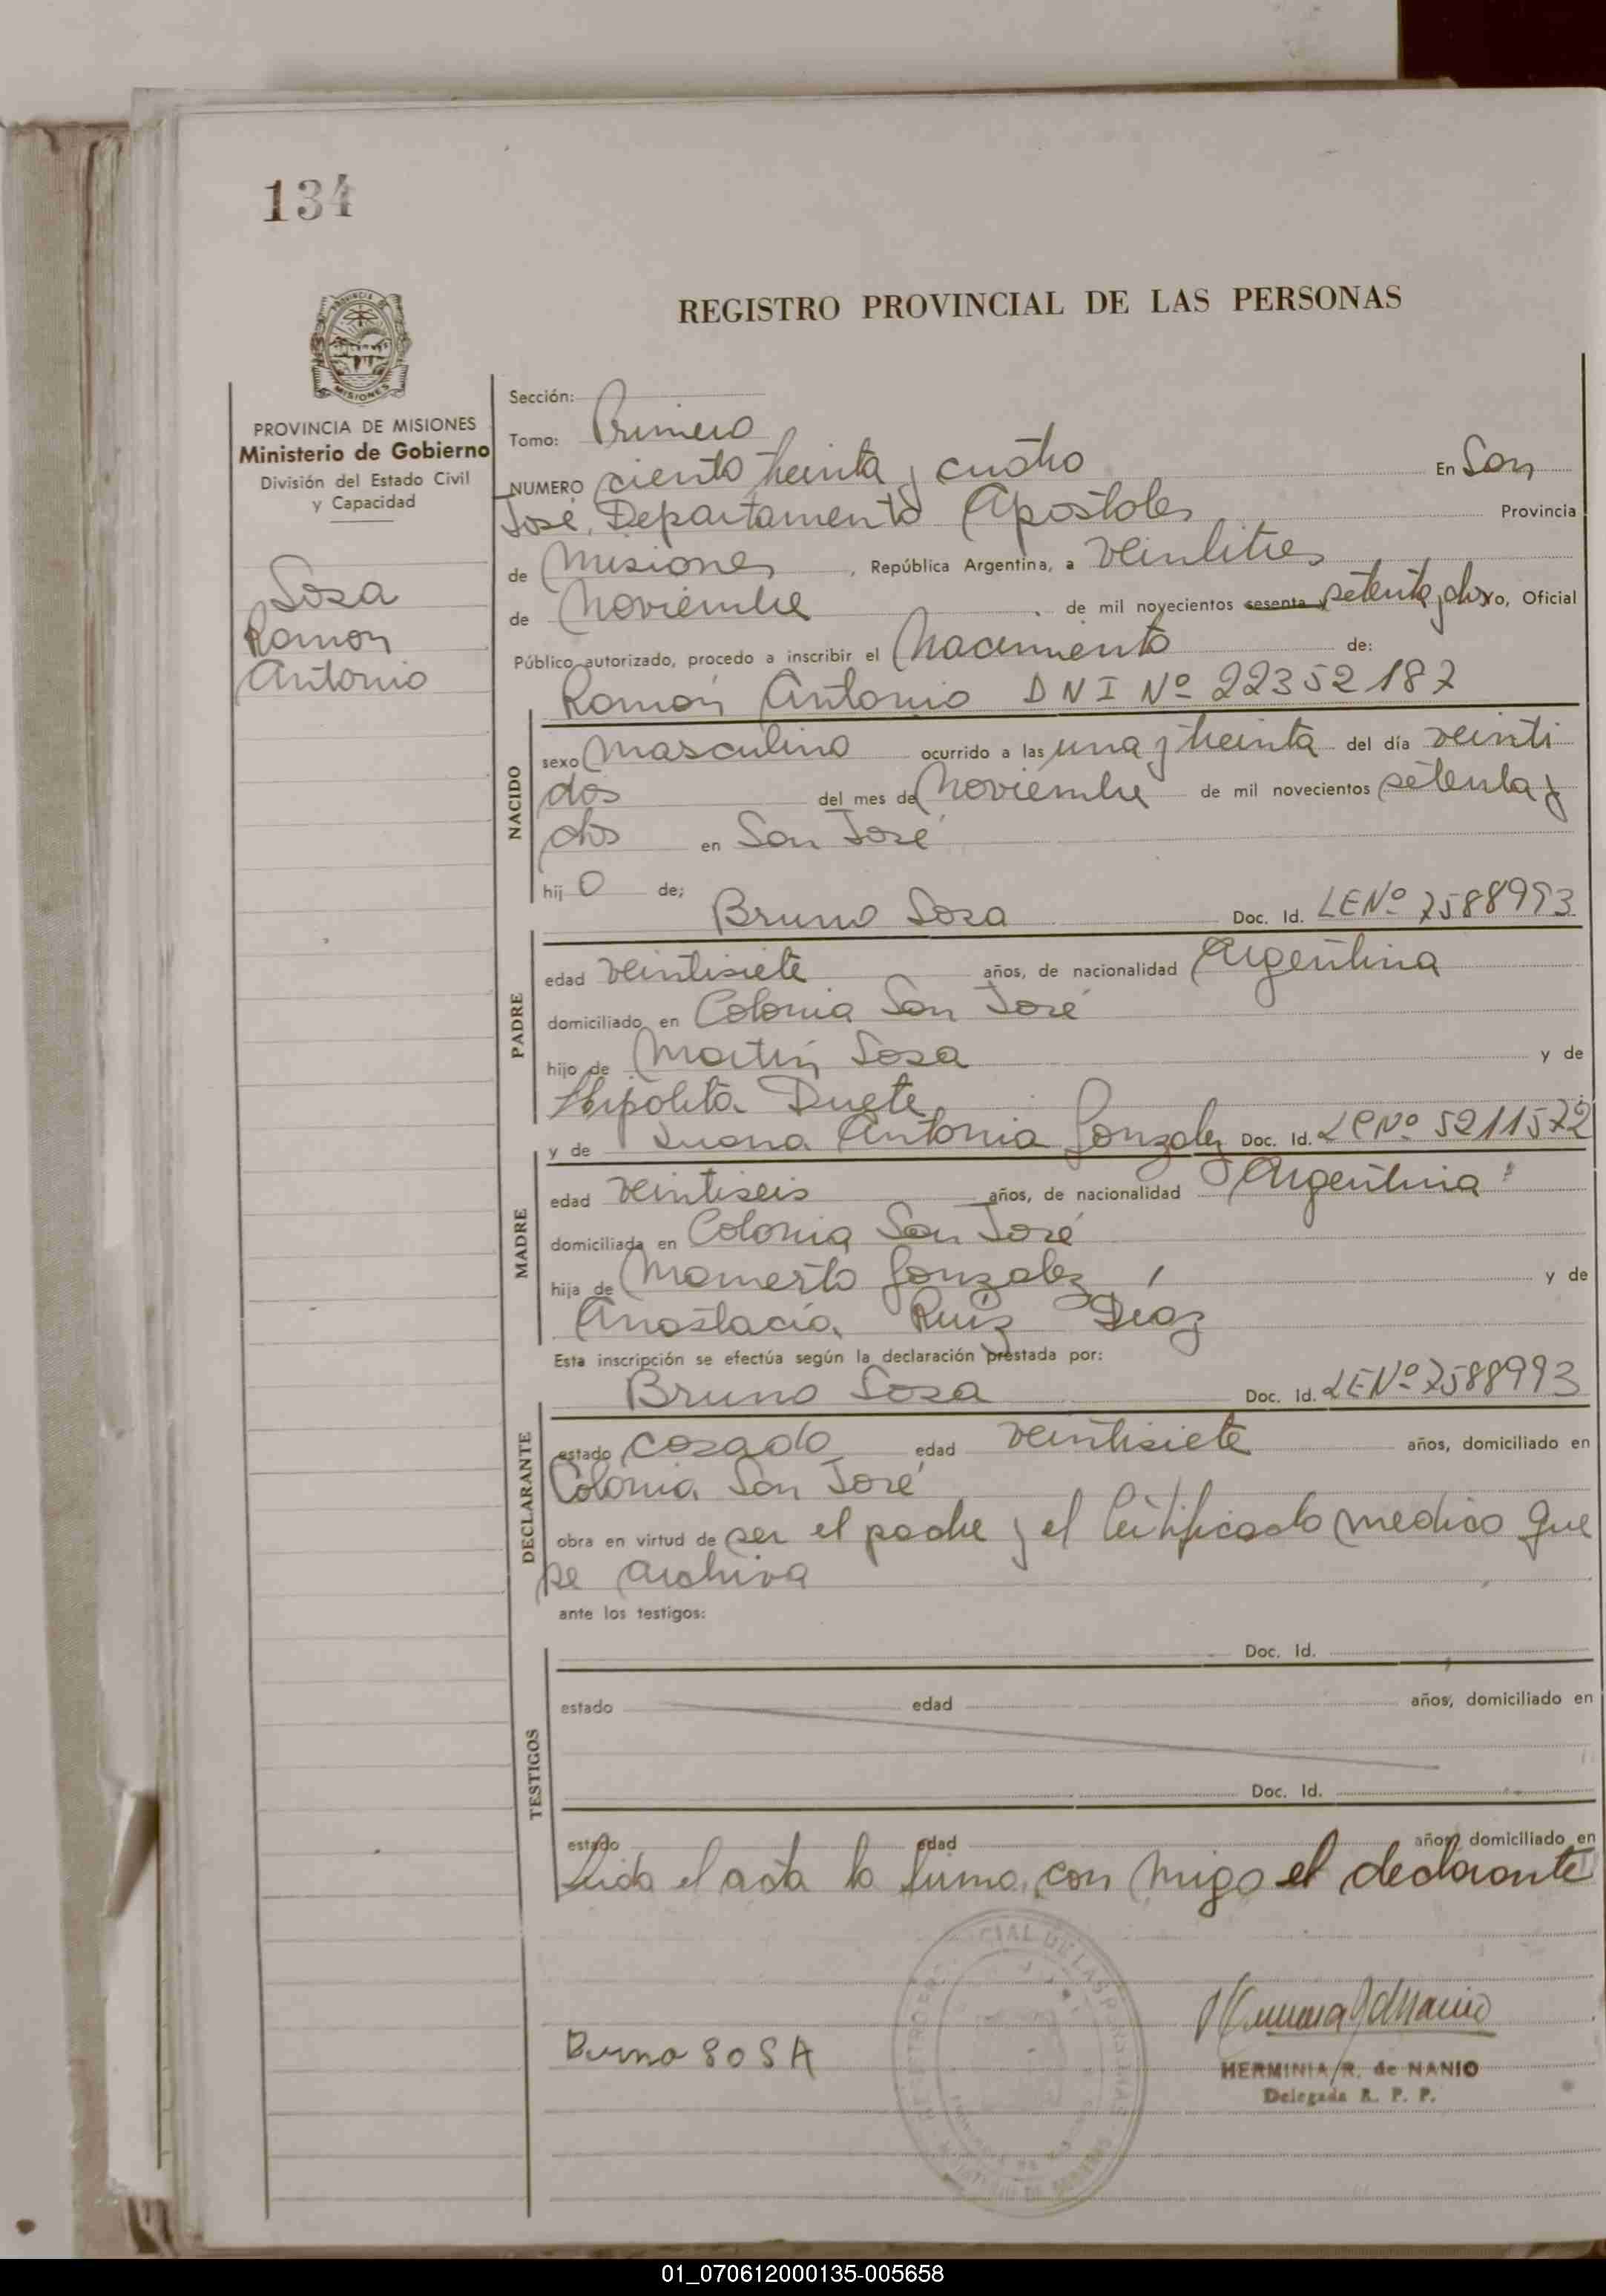 134
REGISTRO PROVINCIAL DE LAS PERSONAS
PROVINCIA DE MISIONES
MISIONES
PROVINCIA DE MISIONES
Ministerio de Gobierno
División del Estado Civil
y Capacidad
Sosa
Ramon
Antonio
Sección:
Tomo: Primero
NUMERO ciento treinta y cuatro En San
José, Departamento Apostoles Provincia
de Misiones, República Argentina, a veintitres
de Noviembre de mil novecientos sesenta y setenta y dos yo, Oficial
Público autorizado, procedo a inscribir el Nacimiento de:
Ramón Antonio DNI Nº 22352187
NACIDO
sexo Masculino ocurrido a las una y treinta del día veinti
dos del mes de Noviembre de mil novecientos setenta y
dos en San José
hijo de; Bruno Sosa Doc. Id. LENº 7588993
PADRE
edad veintisiete años, de nacionalidad Argentina
domiciliado en Colonia San José
hijo de Martin Sosa y de
Hipolita Duete
y de Juana Antonia Gonzalez Doc. Id. LCNº 5211572
MADRE
edad veintiseis años, de nacionalidad Argentina
domiciliada en Colonia San José
hija de Mamerto Gonzalez y de
Anastacia Ruiz Diaz
Esta inscripción se efectúa según la declaración prestada por:
Bruno Sosa Doc. Id. LENº 7588993
DECLARANTE
estado casado edad veintisiete años, domiciliado en
Colonia San José
obra en virtud de ser el padre y el Certificado medico que
se archiva
ante los testigos:
Doc. Id.
TESTIGOS
estado edad años, domiciliado en
Doc. Id.
estado edad años, domiciliado en
Leida el acta la firma con migo el declarante
Bruno SOSA
HERMINIA R. de NANIO
Delegada R. P. P.
01_070612000135-005658